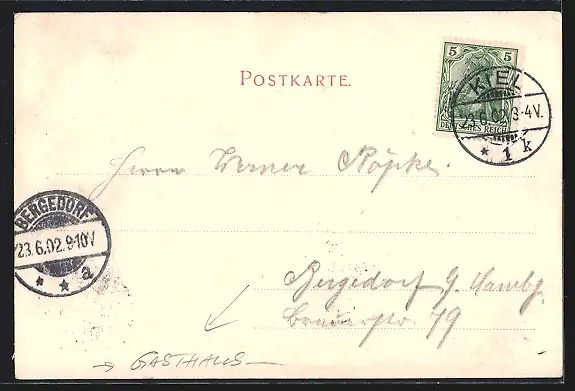 POSTKARTE.
5 5
DEUTSCHES REICH
KIEL
23.6.02.3-4V.
* 1 k
Herrn Werner Röpke.
BERGEDORF
23.6.02.9-10V
* * a
Bergedorf b. Hambg.
79
→ GASTHAUS